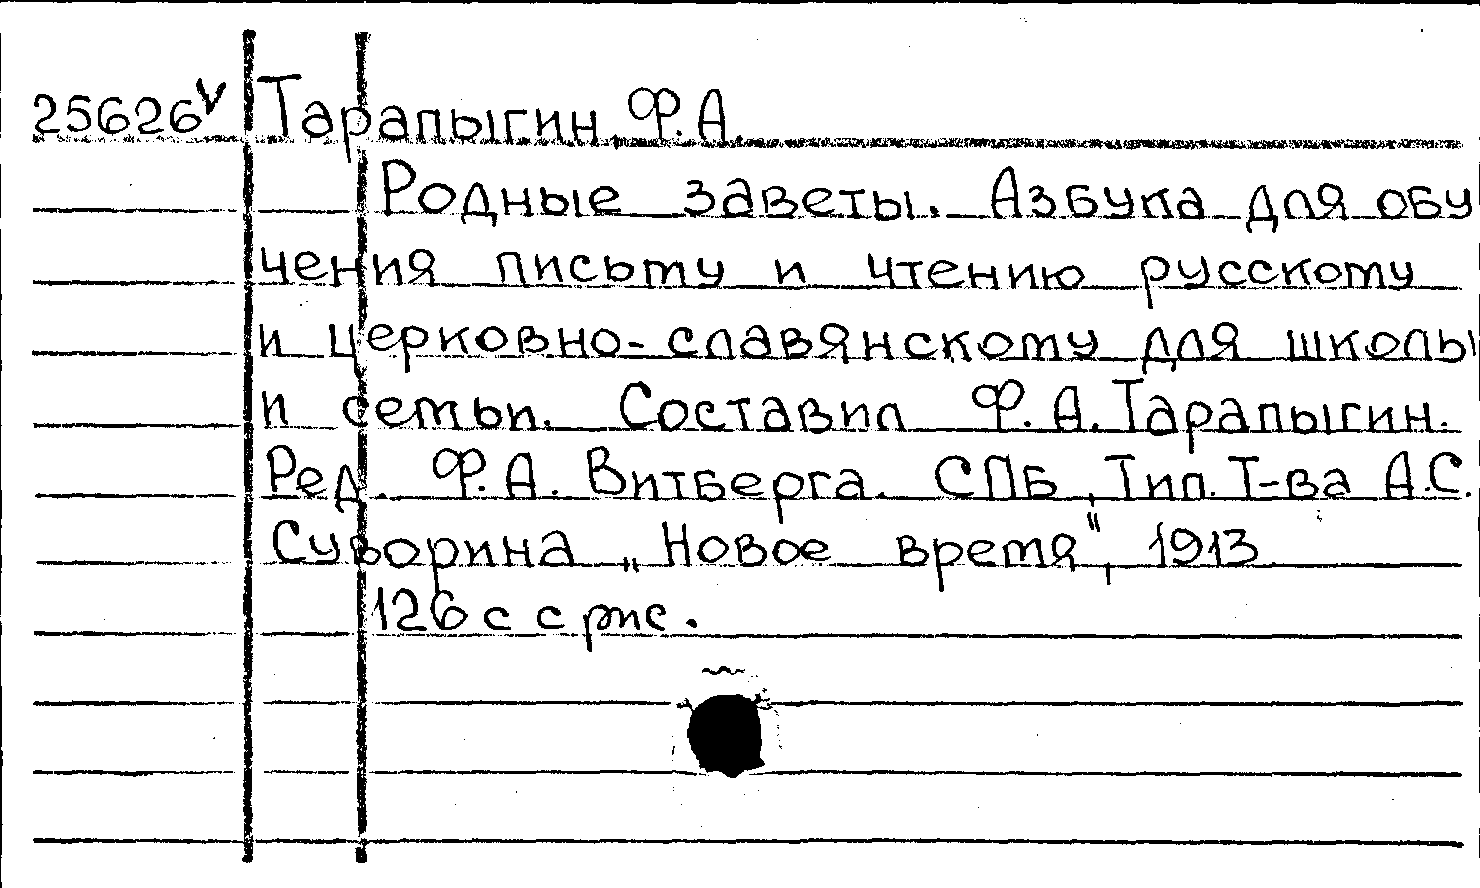 25626v Тарапыгин, Ф.А.
Родные заветы. Азбука для обу
чения письму и чтению русскому
и церковно-славянскому для школы
и семьи. Составил Ф.А. Тарапыгин.
Ред. Ф.А. Витберга. СПБ, Тип. Т-ва А.С.
Суворина „Новое время", 1913
126 с с рис.